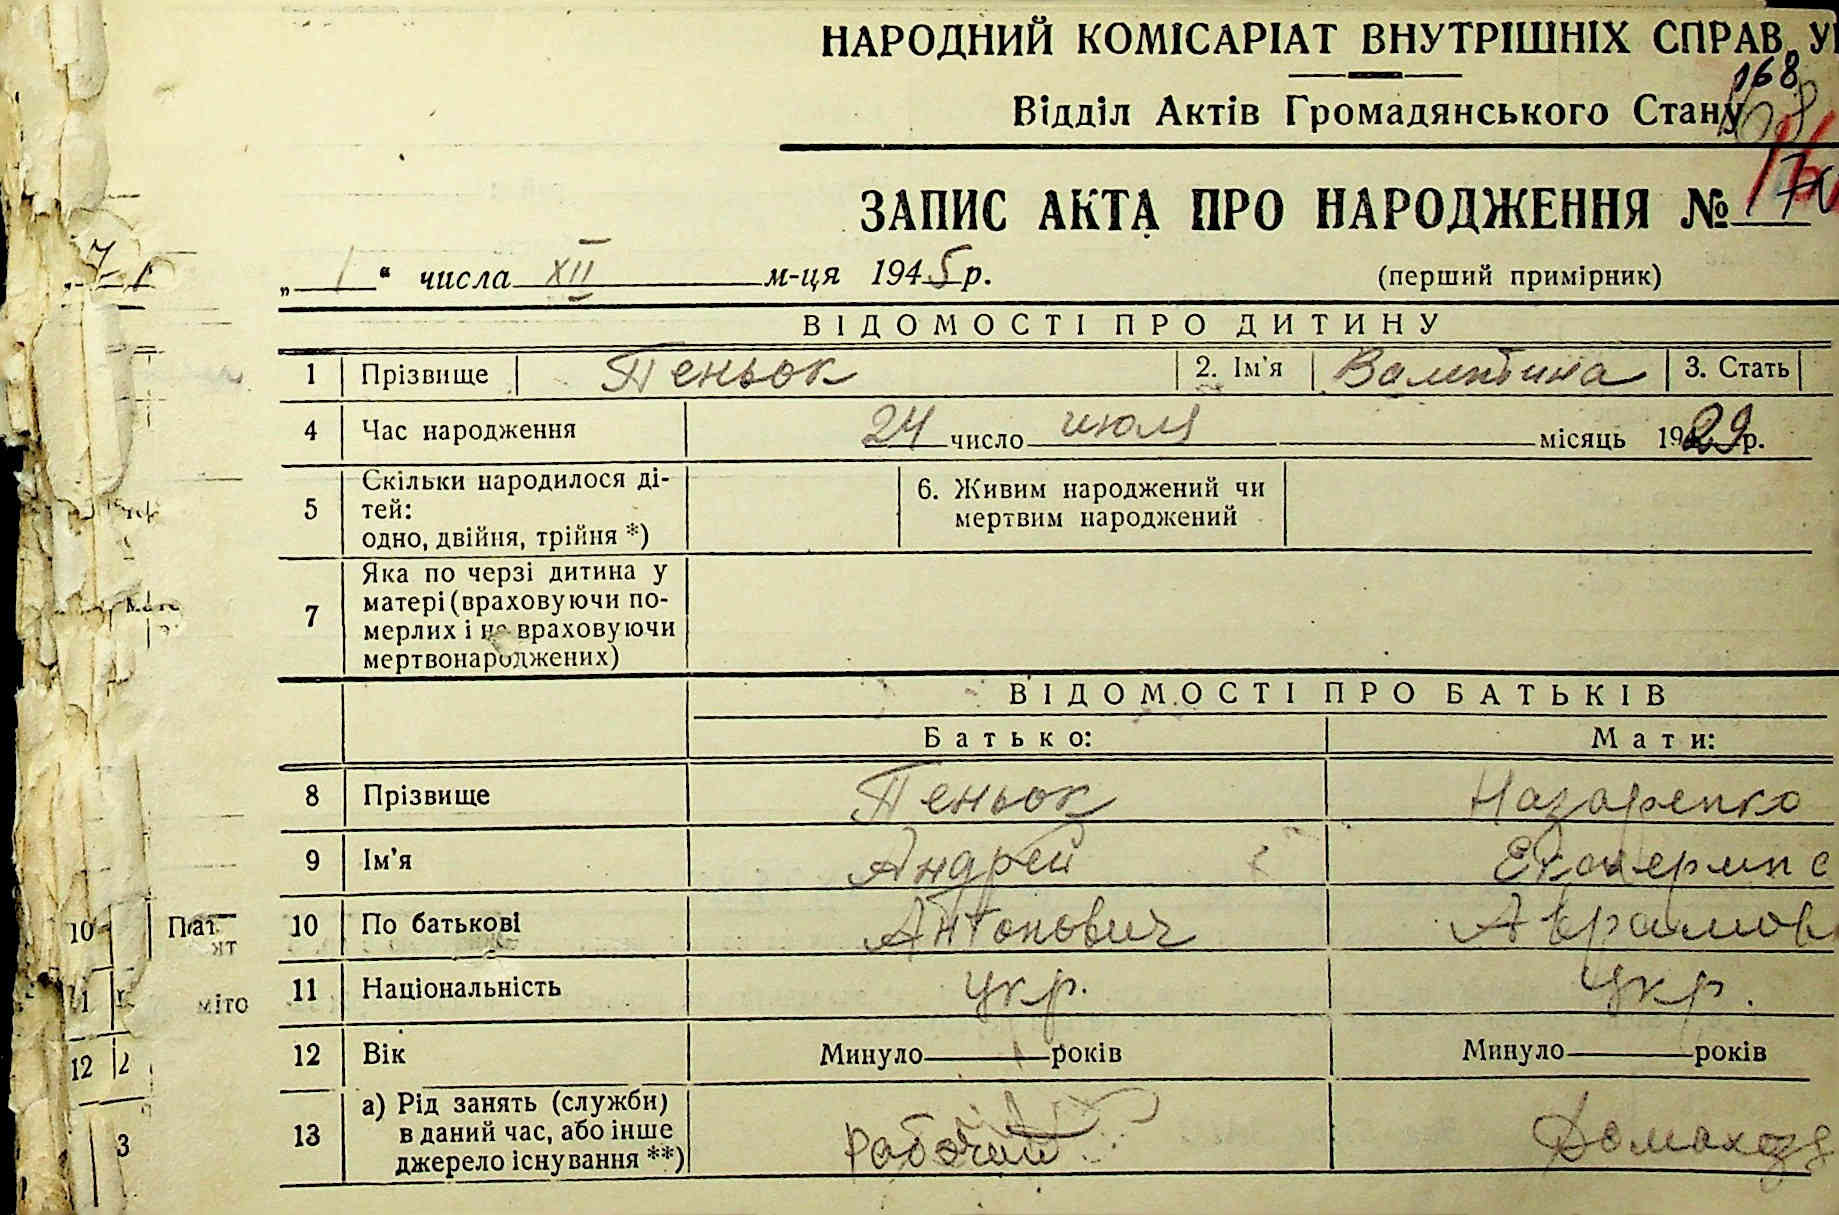 НАРОДНИЙ КОМІСАРІАТ ВНУТРІШНІХ СПРАВ У
168
Відділ Актів Громадянського Стану
ЗАПИС АКТА ПРО НАРОДЖЕННЯ №
„ 1 “ числа XII м-ця 1945 р. (перший примірник)
ВІДОМОСТІ ПРО ДИТИНУ
1 Прізвище Пеньок 2. Ім’я Валентина 3. Стать
4 Час народження 24 число июля місяць 1929 р.
5 Скільки народилося ді-
тей:
одно, двійня, трійня *)
6. Живим народжений чи
мертвим народжений
7 Яка по черзі дитина у
матері (враховуючи по-
мерлих і не враховуючи
мертвонароджених)
ВІДОМОСТІ ПРО БАТЬКІВ
Батько: Мати:
8 Прізвище Пеньок Назаренко
9 Ім’я Андрей Екатерина
10 По батькові Антонович Аврамов
11 Національність укр. укр.
12 Вік Минуло років Минуло років
13 а) Рід занять (служби)
в даний час, або інше
джерело існування **)
рабочий Домахозя
10
11
міто
12 2
3